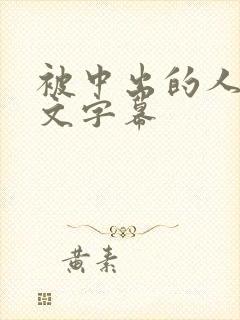 被中出的人
文字幕
黄素